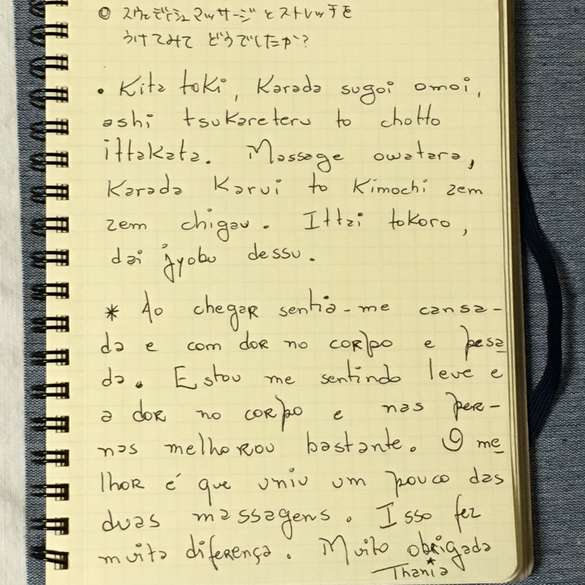 ◎ スウェディシュマッサージとストレッチを
うけてみて どうでしたか?
• Kita toki, Karada sugoi omoi,
ashi tsukareteru to chotto
ittakata. Massage owatara,
Karada Karui to Kimochi zem
zem chigau. Ittai tokoro,
dai jyobu dessu.
* Ao chegar sentia-me cansa-
da e com dor no corpo e pesa
da. Estou me sentindo leve e
a dor no corpo e nas per-
nas melhorou bastante. O me
lhor é que uniu um pouco das
duas massagens. Isso fez
muita diferença. Muito obrigada
Thania